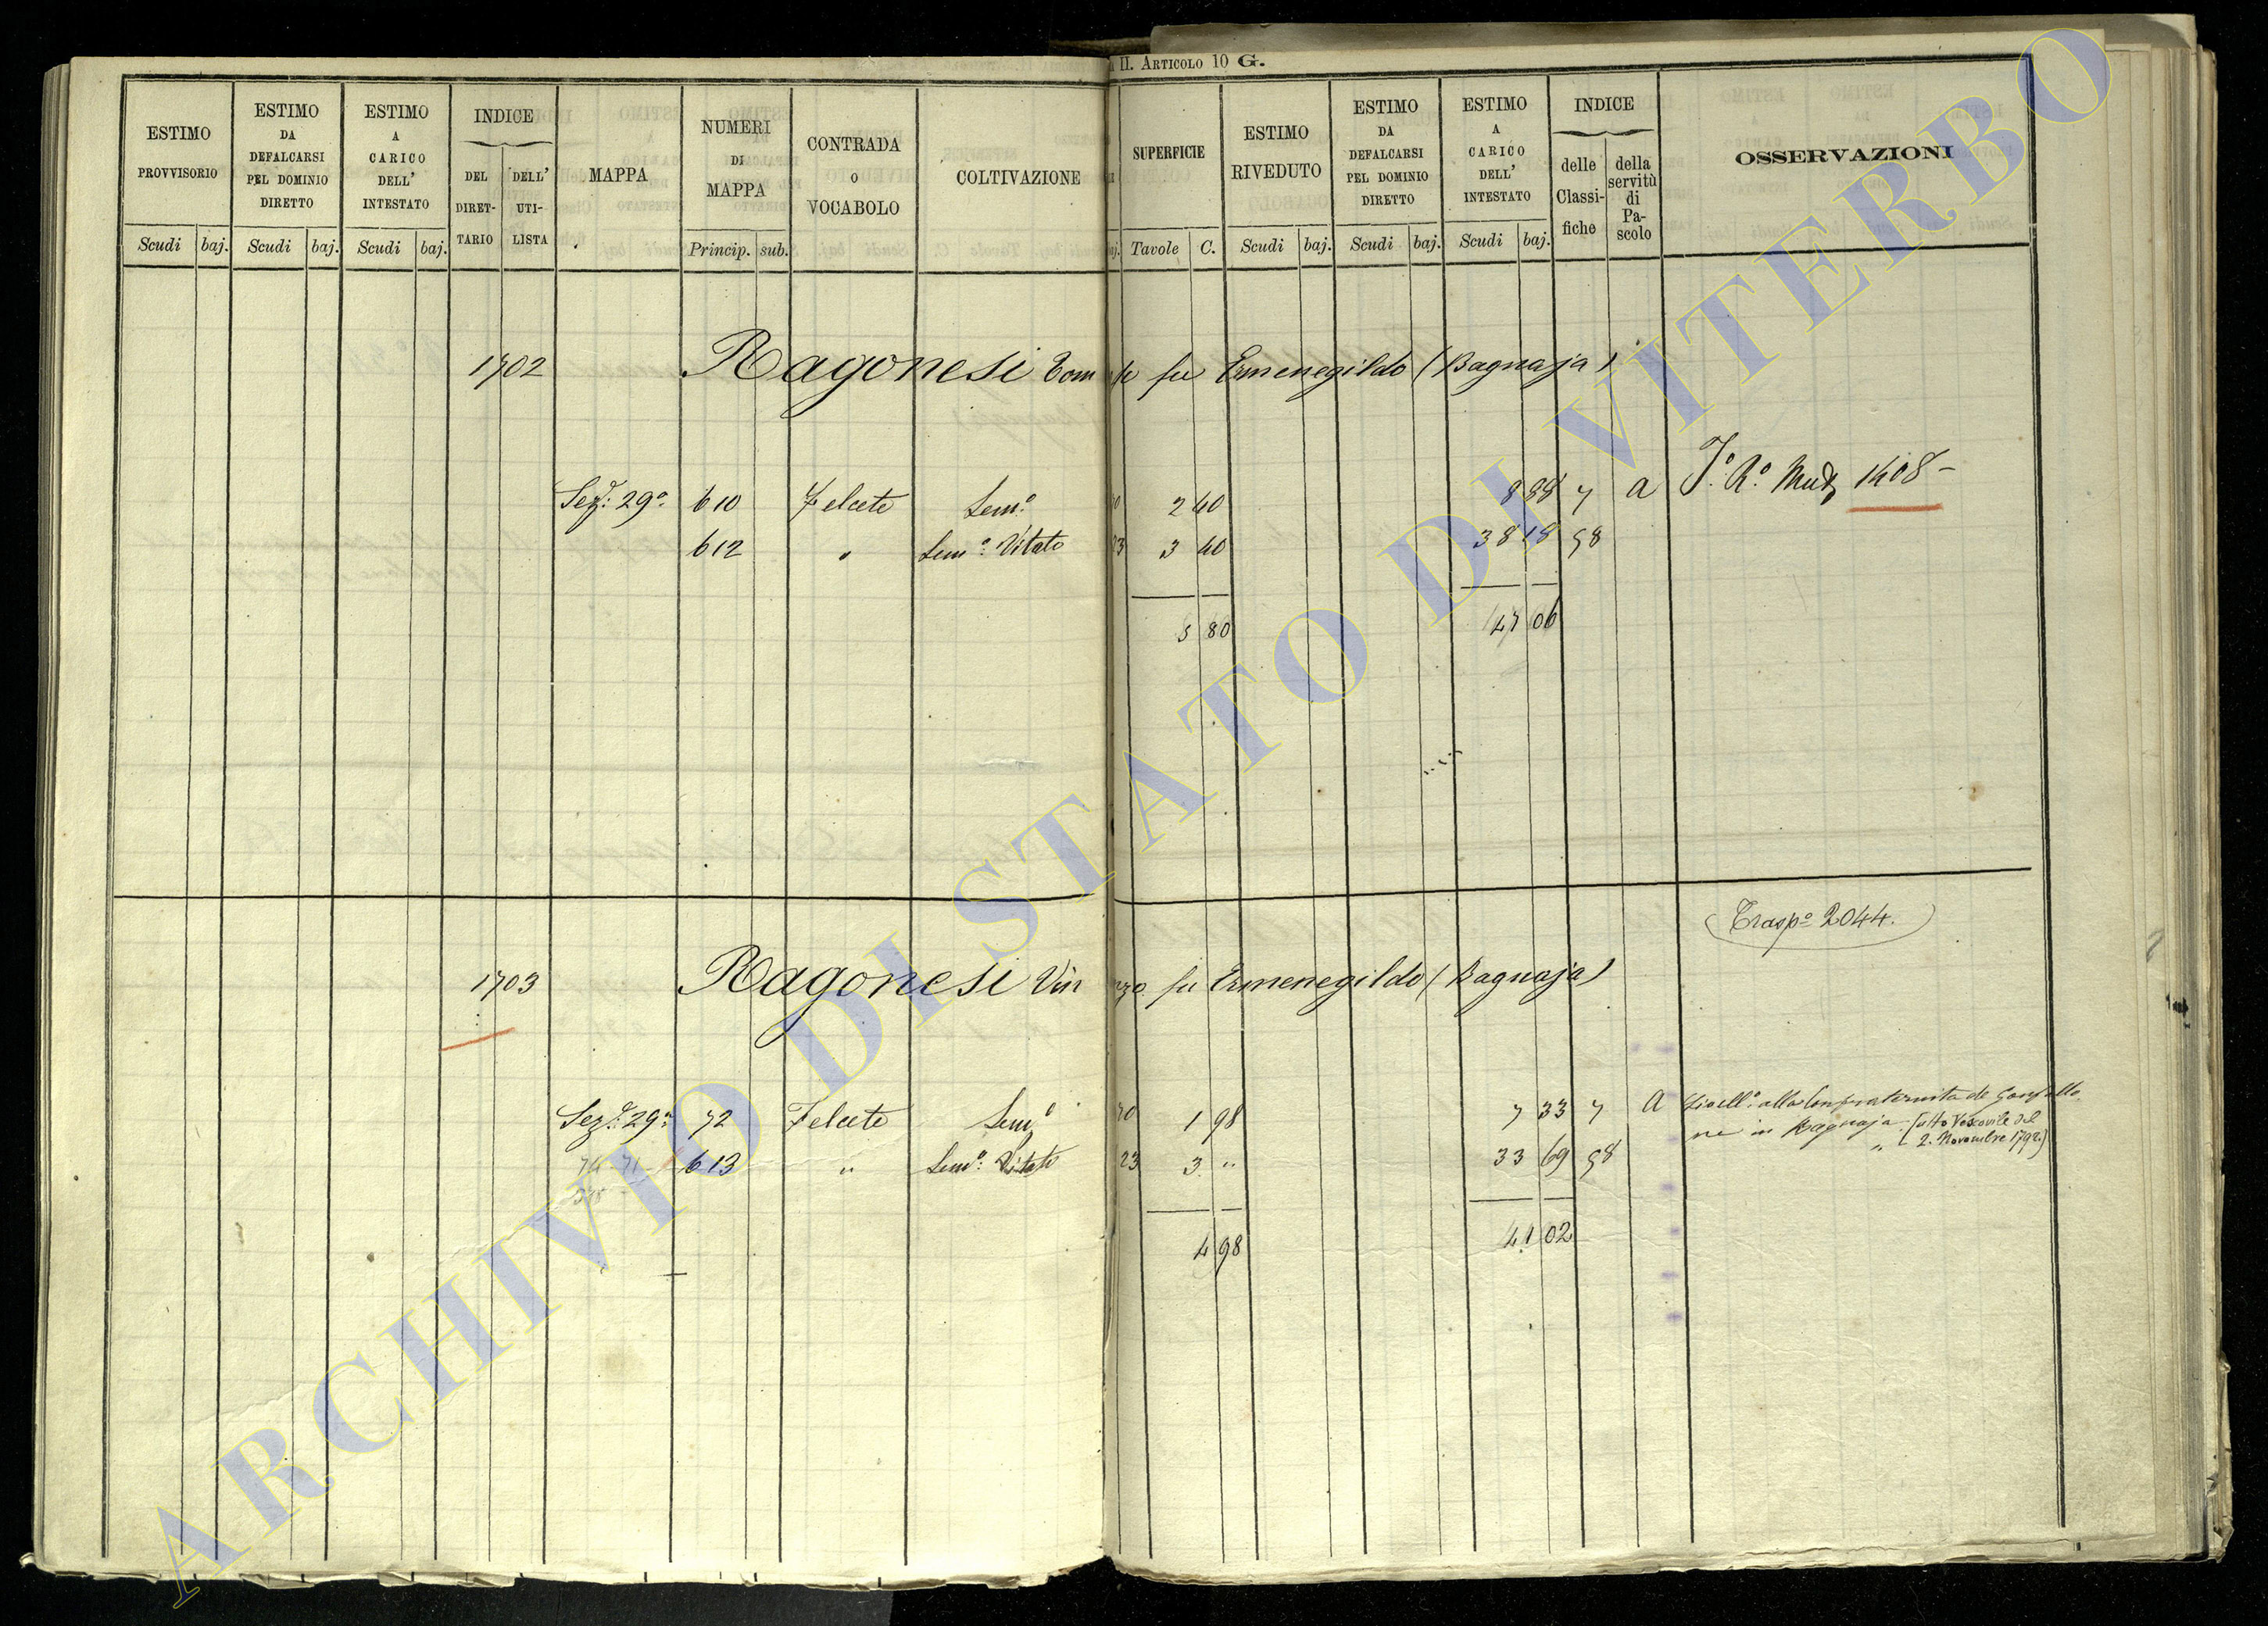 II. Articolo 10 G.
ESTIMO PROVVISORIO
Scudi baj.
ESTIMO DA DEFALCARSI PEL DOMINIO DIRETTO
Scudi baj.
ESTIMO A CARICO DELL' INTESTATO
Scudi baj.
INDICE
DEL DIRET-TARIO
DELL' UTI-LISTA
MAPPA
NUMERI DI MAPPA
Princip. sub.
CONTRADA O VOCABOLO
COLTIVAZIONE
SUPERFICIE
Tavole C.
ESTIMO RIVEDUTO
Scudi baj.
ESTIMO DA DEFALCARSI PEL DOMINIO DIRETTO
Scudi baj.
ESTIMO A CARICO DELL' INTESTATO
Scudi baj.
INDICE
delle Classi-fiche
della servitù di Pa-scolo
OSSERVAZIONI
1702 Ragonesi Tom fu Ermenegildo (Bagnaja)
Sez: 29a 610 Felcete Sem.o 2 40 8 88 7 a 1408
612 " Sem.o Vitato 23 3 40 38 18 58
5 80 47 06
(Trasp.o 2044.)
1703 Ragonesi Vin nzo fu Ermenegildo (Bagnaja)
Sez: 29a 72 Felcete Sem.o 1 98 7 33 7 A Livell.o alla Confraternita de Gonfalo
ne in Bagnaja (atto Vescovile del
2. Novembre 1792)
613 " Sem.o Vitato 23 3 " 33 69 58
4 98 41 02
ARCHIVIO DI STATO DI VITERBO